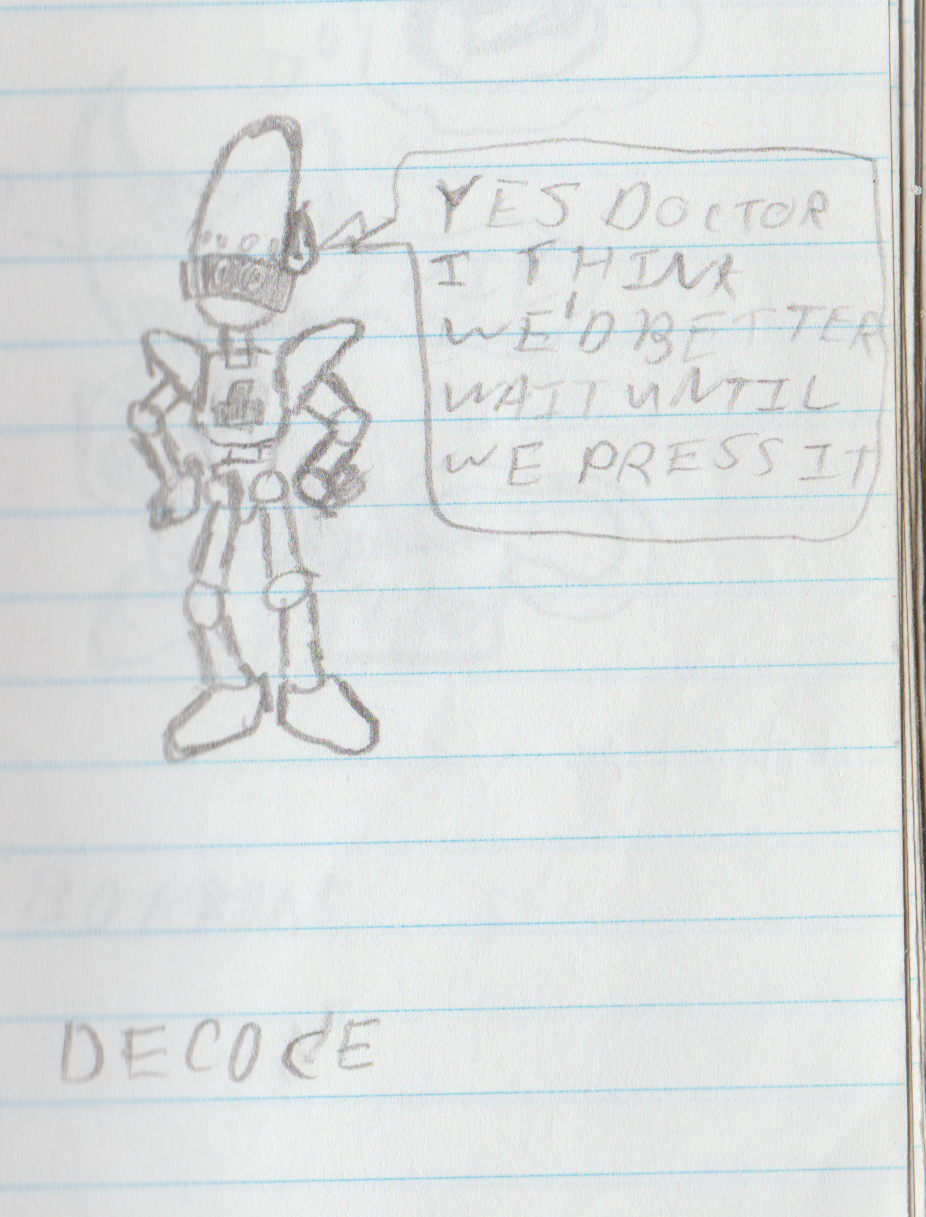 YES DOCTOR
I THINK
WE'D BETTER
WAIT UNTIL
WE PRESS IT
DECODE